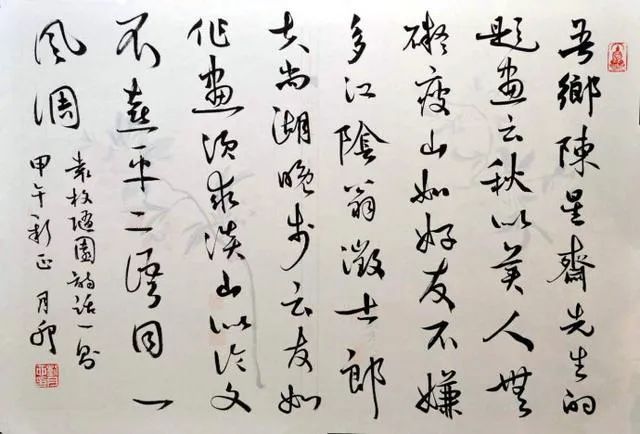 吾鄉陳星齋先生的
題畫云秋似美人無
礙瘦山如好友不嫌
多江陰翁徵士郎
夫尚湖晚步云友如
作畫須求淡山似論文
不喜平二語同一
風調
袁枚隨園詩話一則
甲午新正 月